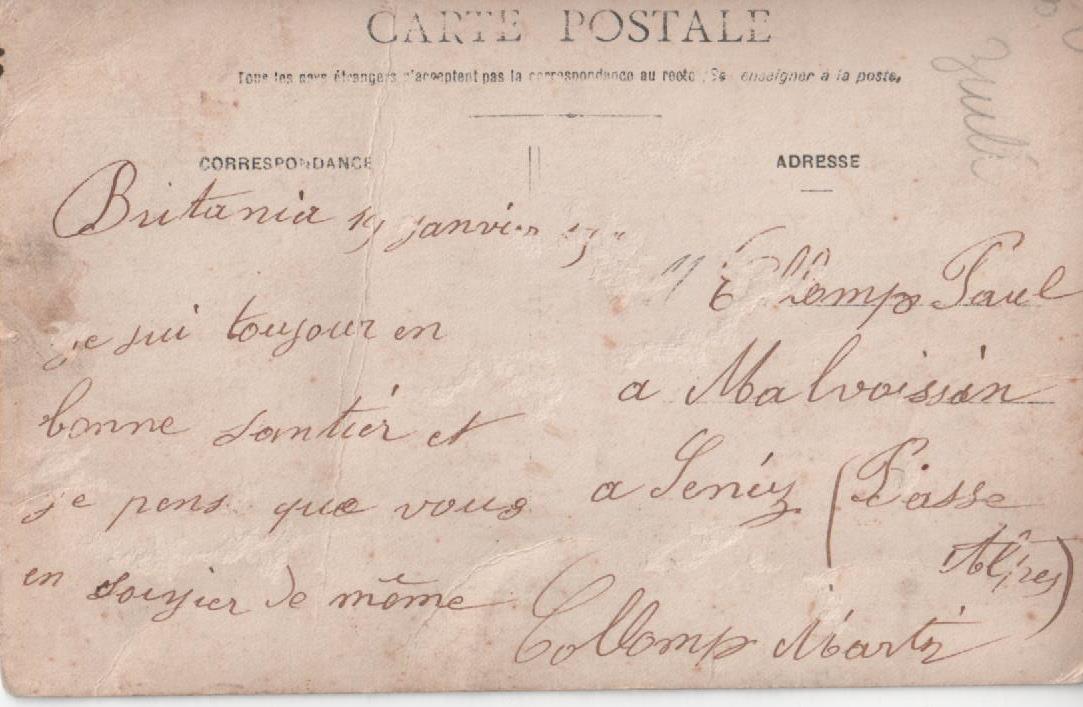 CARTE POSTALE
Tous les pays étrangers n'acceptent pas la correspondance au recto (Se renseigner à la poste.
CORRESPONDANCE
ADRESSE
Britania 19 janvier
je sui toujour en
bonne santiér et
je pens que vous
en soiyier de même
Collomp Paul
a Malvoissin
a Senéz (Basse
Alpes)
Collomp Martin